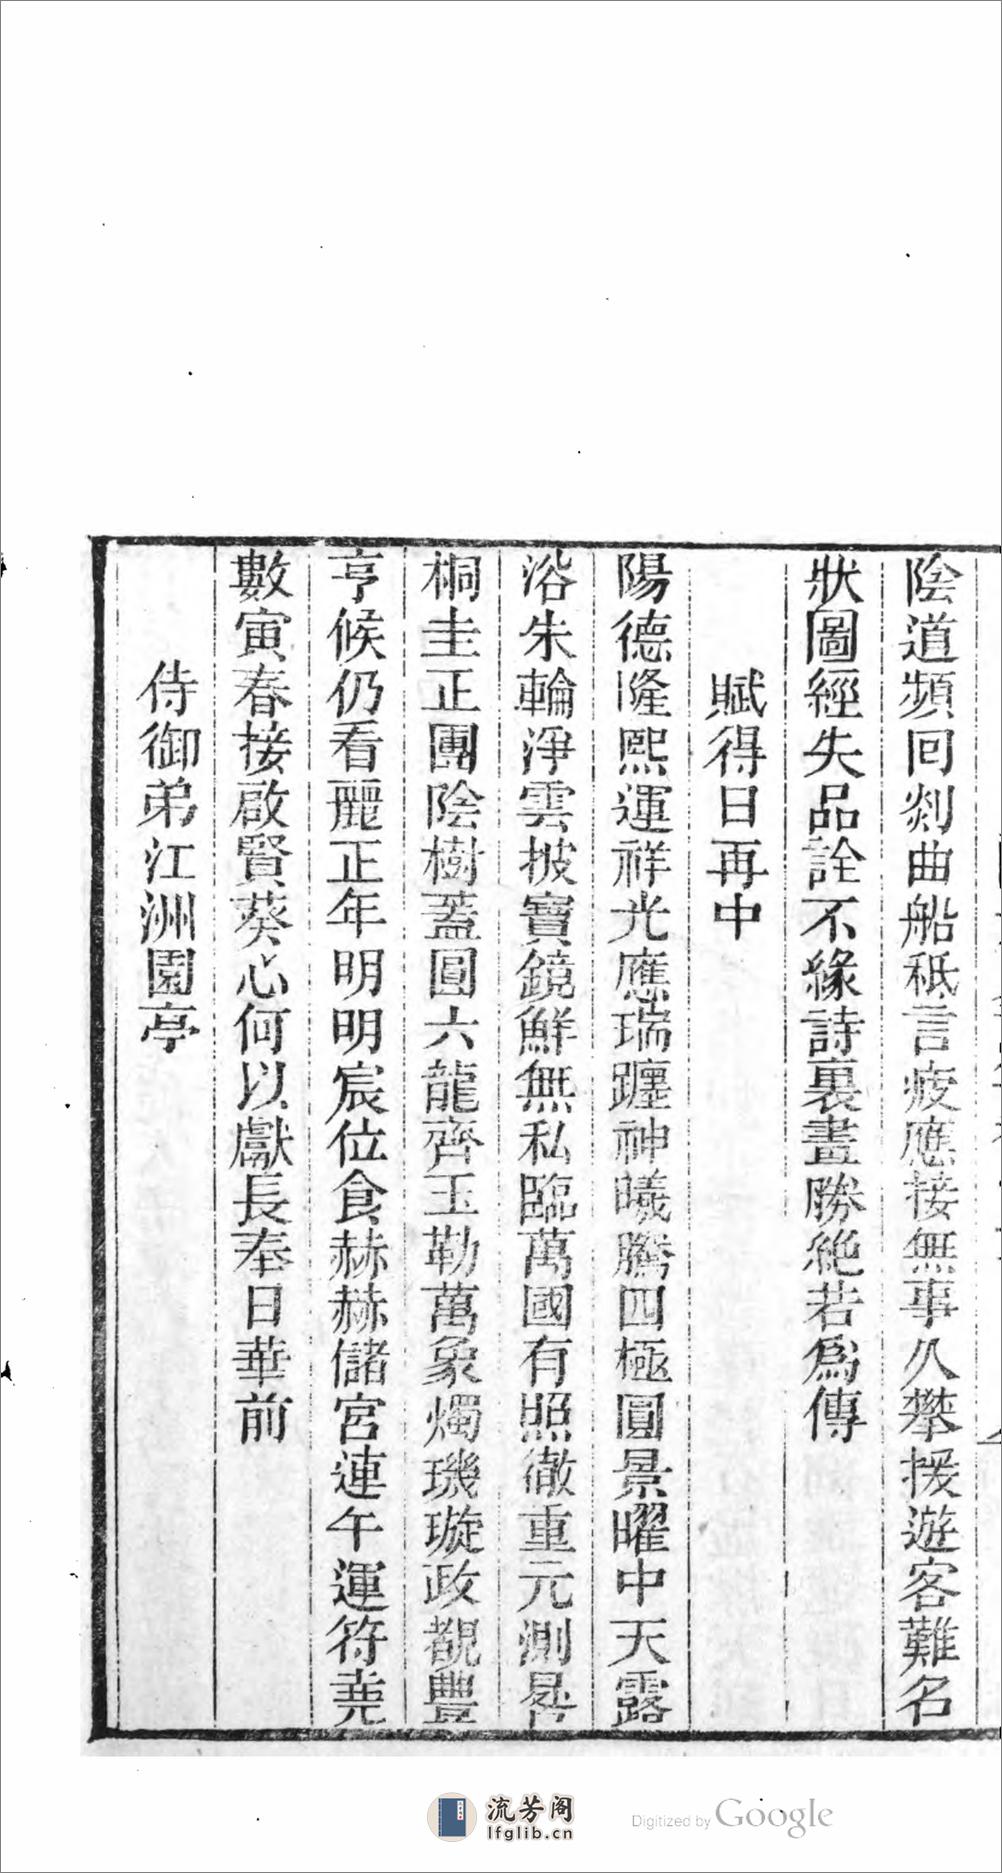 陰道頻回剡曲船秖言疲應接無事久攀援遊客難名
狀圖經失品詮不緣詩裏畫勝絶若爲傳
賦得日再中
陽德隆熙運祥光應瑞躔神曦騰四極圓景曜中天露
浴朱輪淨雲披寶鏡鮮無私臨萬國有照徹重元測晷
桐圭正團陰樹蓋圓六龍齊玉勒萬象燭璣璇政覩豐
亨候仍看麗正年明明宸位食赫赫儲宮連午運符堯
數寅春接啟賢葵心何以獻長奉日華前
侍御弟江洲園亭
流芳阁
lfglib.cn
Digitized by Google